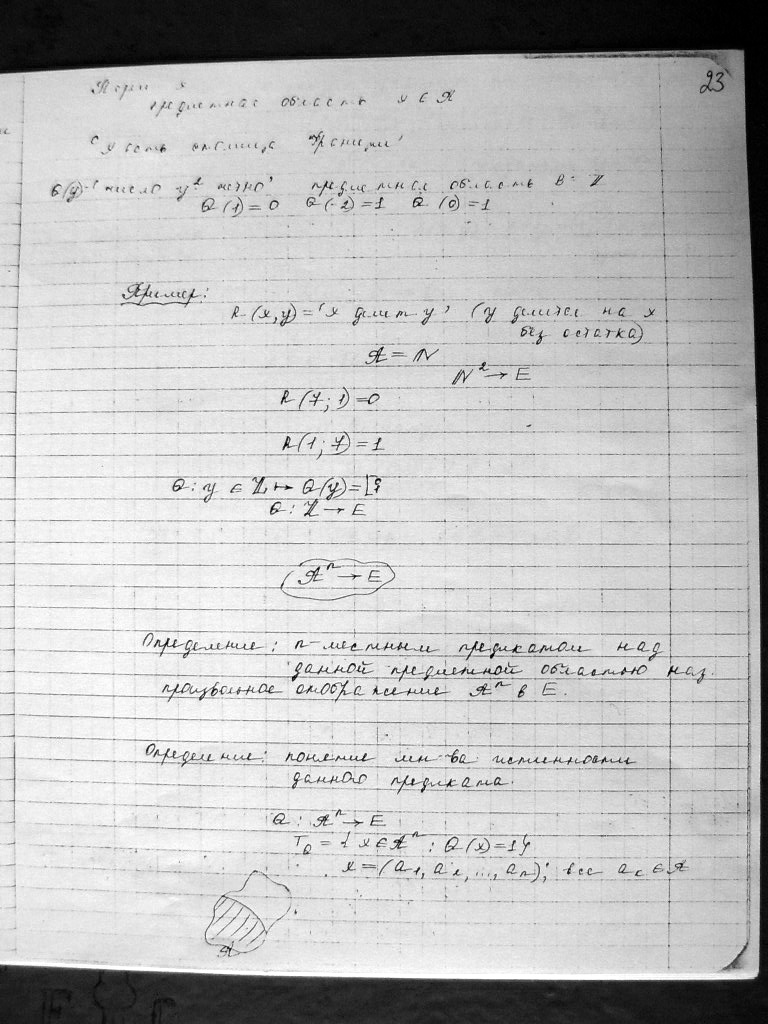 23
предметная область x ∈ A
"x есть столица Франции"
Q(y)="число y² четно" предметная область B = Z
Q(1)=0 Q(-2)=1 Q(0)=1
Пример:
R(x,y)="x делит y" (y делится на x
без остатка)
A = N
N² → E
R(7;1)=0
R(1;7)=1
Q: y ∈ Z ↦ Q(y)=
Q: Z → E
Aⁿ → E
Определение: n-местным предикатом над
данной предметной областью наз.
произвольное отображение Aⁿ в E.
Определение: понятие мн-ва истинности
данного предиката.
Q: Aⁿ → E
T_Q = { x ∈ Aⁿ : Q(x)=1}
x=(a₁, a₂, ..., aₙ); все aᵢ ∈ A
A